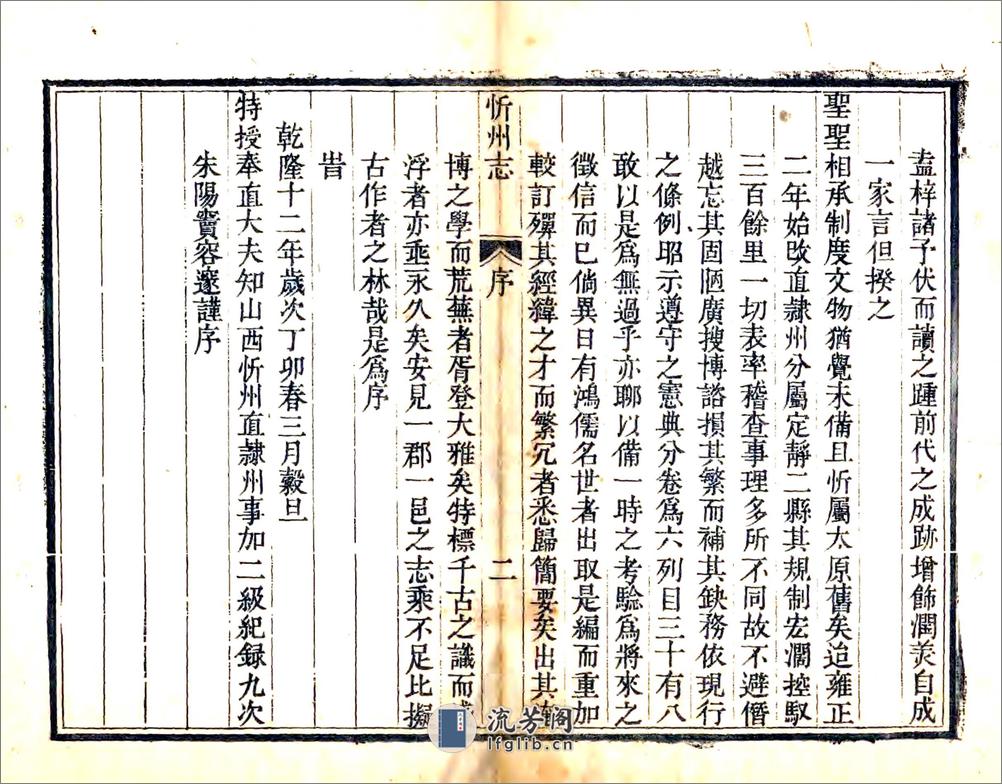 盍梓諸予伏而讀之踵前代之成跡增飾潤美自成
一家言但揆之
聖聖相承制度文物猶覺未備且忻屬太原舊矣迨雍正
二年始改直隸州分屬定靜二縣其規制宏濶控馭
三百餘里一切表率稽查事理多所不同故不避僭
越忘其固陋廣搜博諮損其繁而補其缺務依現行
之條例昭示遵守之憲典分卷爲六列目三十有八
敢以是爲無過乎亦聊以備一時之考驗爲將來之
徵信而已倘異日有鴻儒名世者出取是編而重加
較訂殫其經緯之才而繁冗者悉歸簡要矣出其
忻州志 序 二
博之學而荒蕪者胥登大雅矣特標千古之識而
浮者亦垂永久矣安見一郡一邑之志乘不足比擬
古作者之林哉是爲序
旹
乾隆十二年歲次丁卯春三月穀旦
特授奉直大夫知山西忻州直隸州事加二級紀錄九次
朱陽竇容邃謹序
流芳閣
lfglib.cn